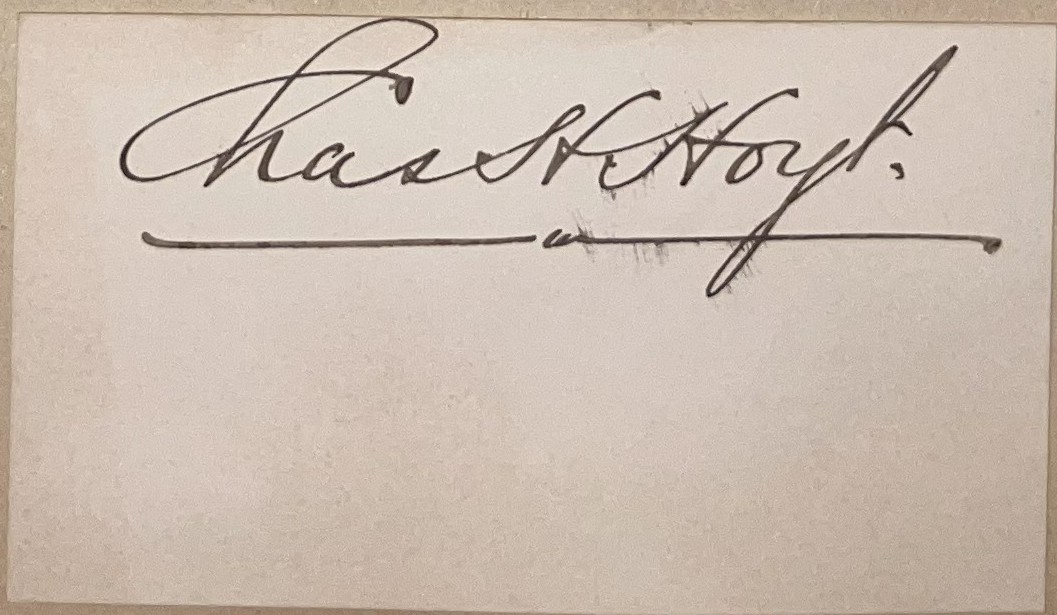 Chas H. Hoyt.